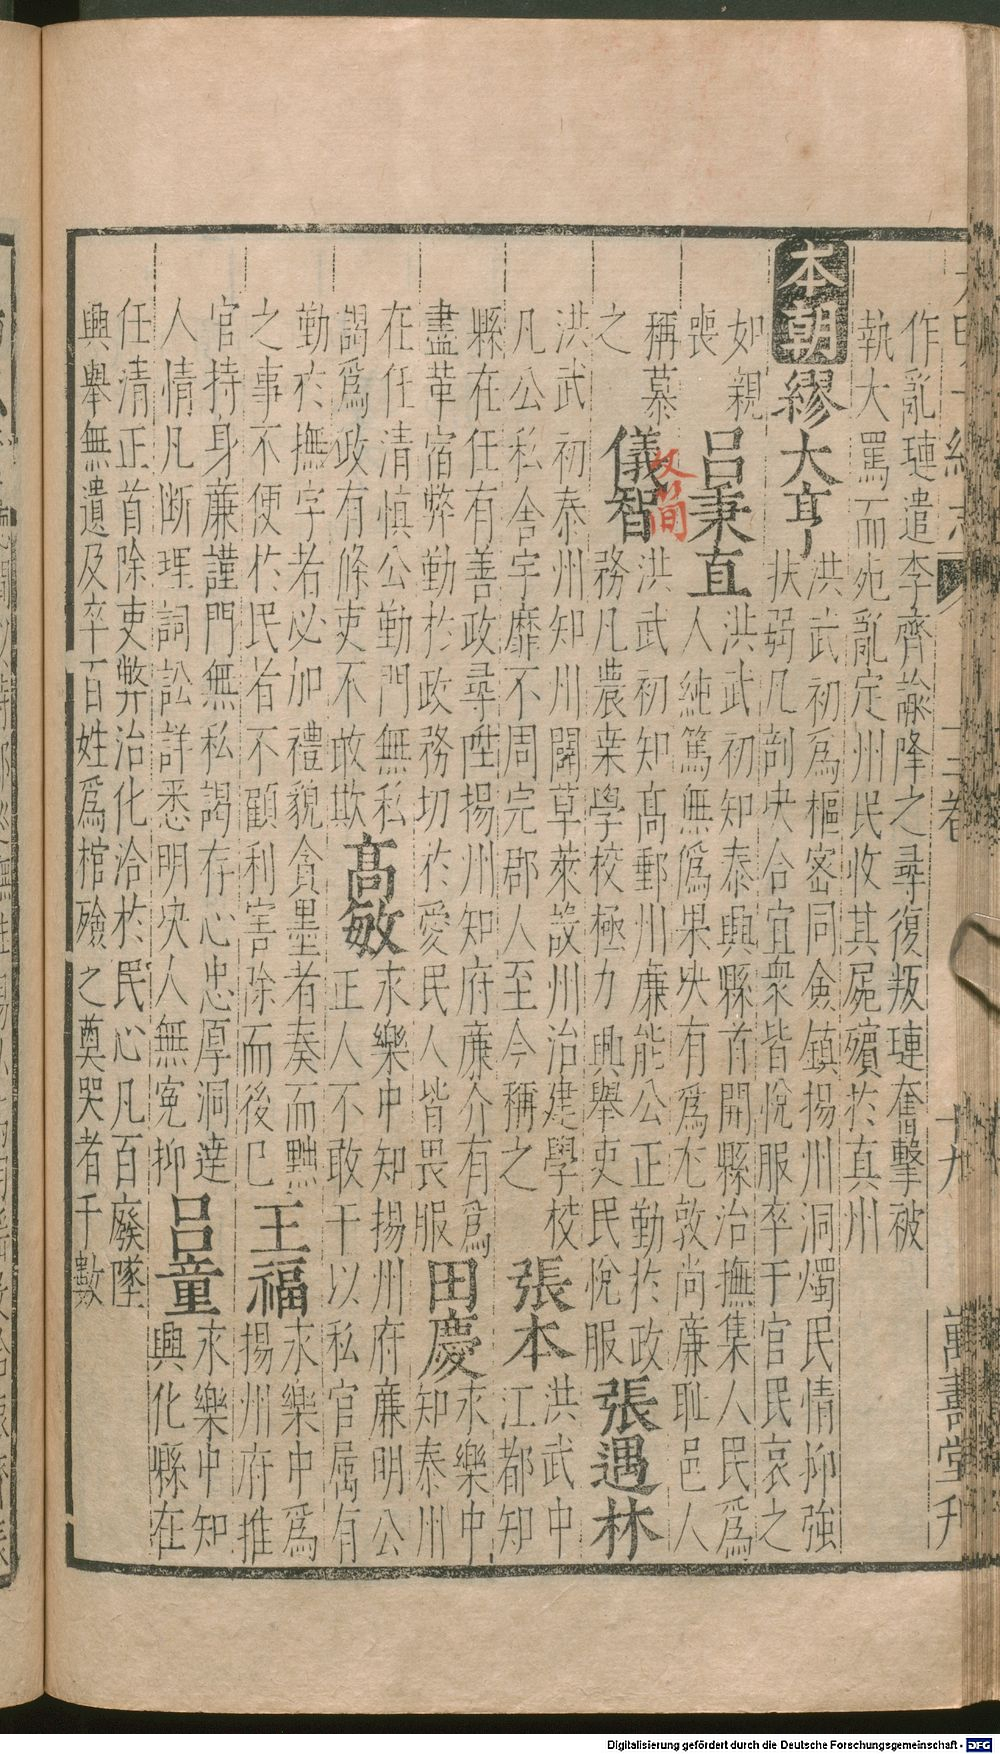 作亂璉遣李齊諭降之尋復叛璉奮擊被
執大罵而死亂定州民收其屍殯於真州
本朝
繆大亨
洪武初爲樞密同僉鎮揚州洞燭民情抑強
扶弱凡剖决合宜衆皆悅服卒于官民哀之
如親
喪
呂秉直
洪武初知泰興縣首開縣治撫集人民爲
人純篤無僞果决有爲尤敦尚廉耻邑人
稱慕
之
儀智
父簡
洪武初知高郵州廉能公正勤於政
務凡農桒學校極力興舉吏民悅服
張遇林
洪武初泰州知州闢草萊設州治建學校
凡公私舍宇靡不周完郡人至今稱之
張本
洪武中
江都知
縣在任有善政尋陞揚州知府廉介有爲
盡革宿弊勤於政務切於愛民人皆畏服
田慶
永樂中
知泰州
在任清慎公勤門無私
謁爲政有條吏不敢欺
高敏
永樂中知揚州府廉明公
正人不敢干以私官属有
勤於撫字者必加禮貌貪墨者奏而黜
之事不便於民者不顧利害除而後已
王福
永樂中爲
揚州府推
官持身廉謹門無私謁存心忠厚洞達
人情凡断理詞訟詳悉明决人無寃抑
呂童
永樂中知
興化縣在
任清正首除吏弊治化洽於民心凡百廢墜
興舉無遺及卒百姓爲棺殮之奠哭者千數
十九
萬壽堂刋
Digitalisierung gefördert durch die Deutsche Forschungsgemeinschaft - DFG